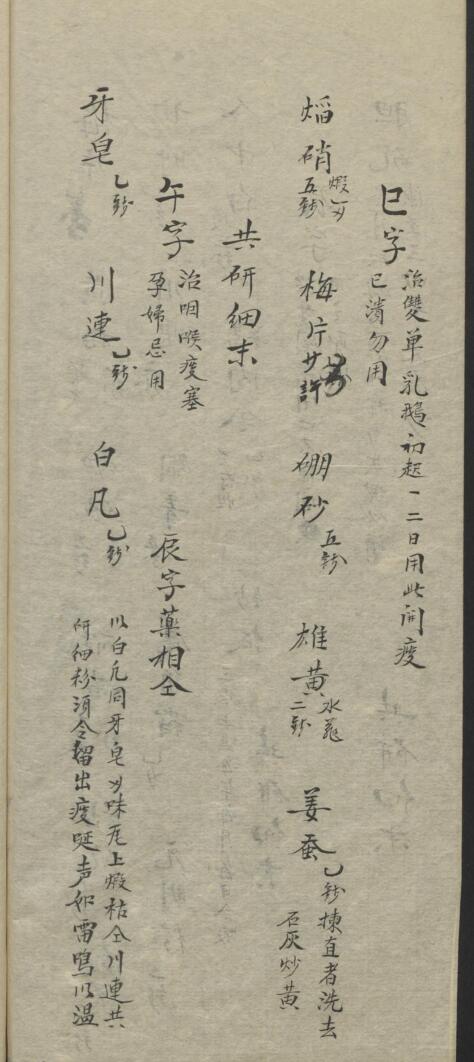 巳字 治雙单乳鵝初起一二日用此開痰
已潰勿用
焰硝 煅〻 五錢 梅片 廿許 硼砂 五錢 雄黃 水飛 二錢 姜蚕 乙錢 揀直者洗去
石灰炒黃
共研细末
午字 治咽喉痰塞
孕婦忌用 辰字藥相仝
牙皂 乙錢 川連 乙錢 白凡 乙錢 以白凡同牙皂〻味瓦上煅枯仝川連共
研细粉須令畱出痰涎声如雷鳴以温